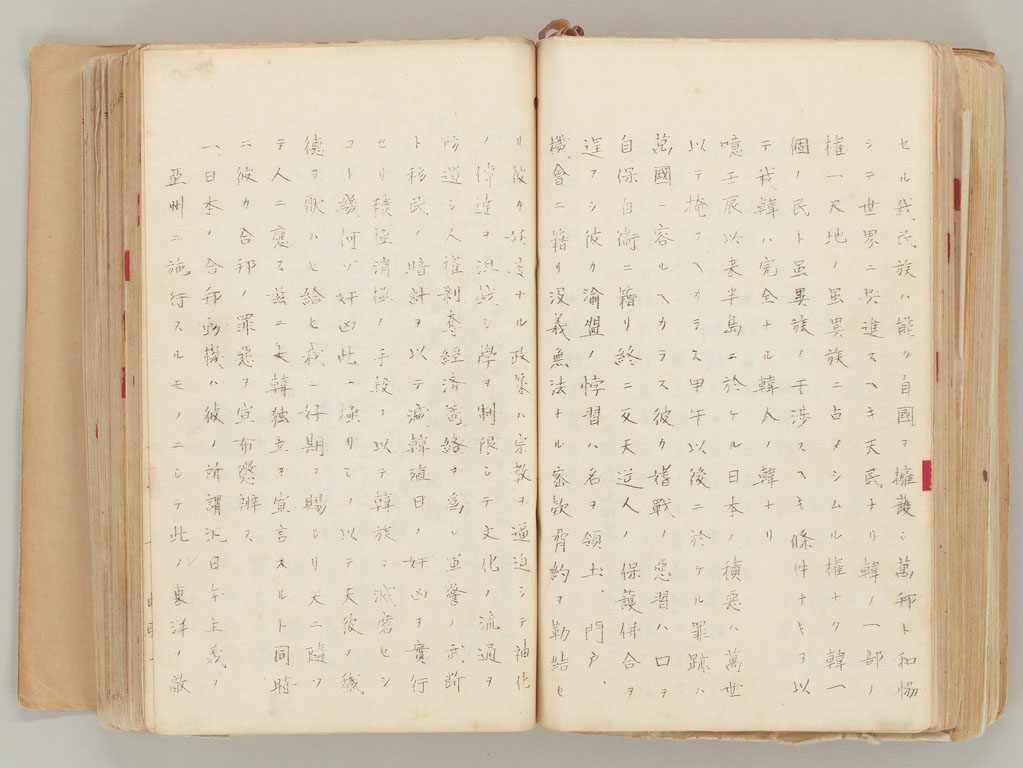 セル我民族ハ能ク自國ヲ擁護シ萬邦ト和協
シテ世界ニ共進スヘキ天民ナリ韓ノ一部ノ
権一尺地ノ雖異族ニ占メシムル権ナク韓一
個ノ民ト雖異族ノ干渉スヘキ條件ナキヲ以
テ我韓ハ完全ナル韓人ノ韓ナリ
噫壬辰以来半島ニ於ケル日本ノ積悪ハ萬世
以テ掩フヘカラス甲午以後ニ於ケル罪跡ハ
萬國ニ容ルヘカラス彼カ嗜戰ノ惡習ハ口ヲ
自保自衛ニ籍リ終ニ反天逆人ノ保護併合ヲ
逞フシ彼カ渝盟ノ悖習ハ名ヲ領土、門戸、
機會ニ籍リ没義無法ナル密款脅約ヲ勒結セ
リ彼ノ ナル政策ハ宗教ヲ逼迫シテ神化
ノ傳達ヲ沮 シ學ヲ制限シテ文化ノ流通ヲ
防遏シ人権剥奪經済籠絡ヲ為シ軍警ノ武断
ト移民ノ暗計ヲ以テ滅韓殖日ノ奸凶ヲ實行
セリ積極消極ノ手段ヲ以テ韓族ヲ滅磨セシ
コト幾何ゾ奸凶此ニ極リシノ以テ天彼ノ穢
徳ヲ歌ハセ給ヒ我ニ好期ヲ賜シリ天ニ随ヒ
テ人ニ應ス茲ニ大韓独立ヲ宣言スルト同時
ニ彼カ合邦ノ罪惡ヲ宣布懲辦ス
一、日本ノ合邦動機ハ彼ノ所謂汎日本主義ヲ
亞州ニ施行スルモノニシテ此ノ東洋ノ敵